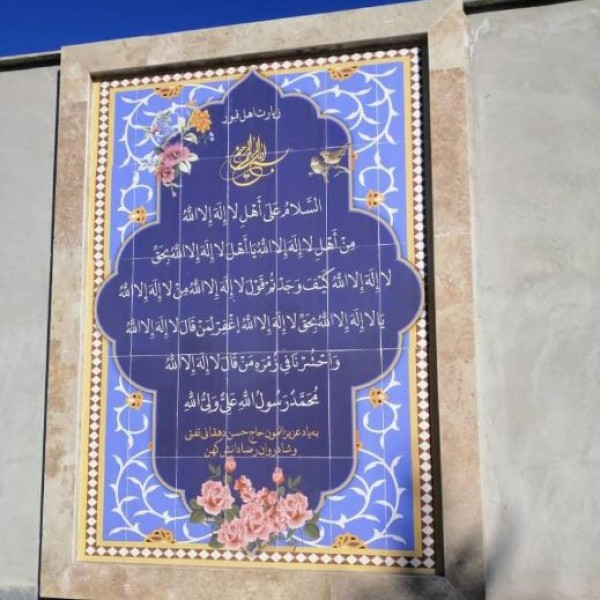 زیارت اهل قبور
بسم الله الرحمن الرحیم
السَّلامُ عَلى أَهْلِ لا إِلٰهَ إِلَّا اللهُ
مِنْ أَهْلِ لا إِلٰهَ إِلَّا اللهُ يا أَهْلَ لا إِلٰهَ إِلَّا اللهُ بِحَقِّ
لا إِلٰهَ إِلَّا اللهُ كَيْفَ وَجَدْتُمْ قَوْلَ لا إِلٰهَ إِلَّا اللهُ مِنْ لا إِلٰهَ إِلَّا اللهُ
يا لا إِلٰهَ إِلَّا اللهُ بِحَقِّ لا إِلٰهَ إِلَّا اللهُ اغْفِرْ لِمَنْ قالَ لا إِلٰهَ إِلَّا اللهُ
وَاحْشُرْنا في زُمْرَةِ مَنْ قالَ لا إِلٰهَ إِلَّا اللهُ
مُحَمَّدٌ رَسُولُ اللهِ عَلِيٌّ وَلِيُّ اللهِ
به یاد عزیزانمون حاج حسن دهقانی تفتی
و شادروان رضا دانش کهن